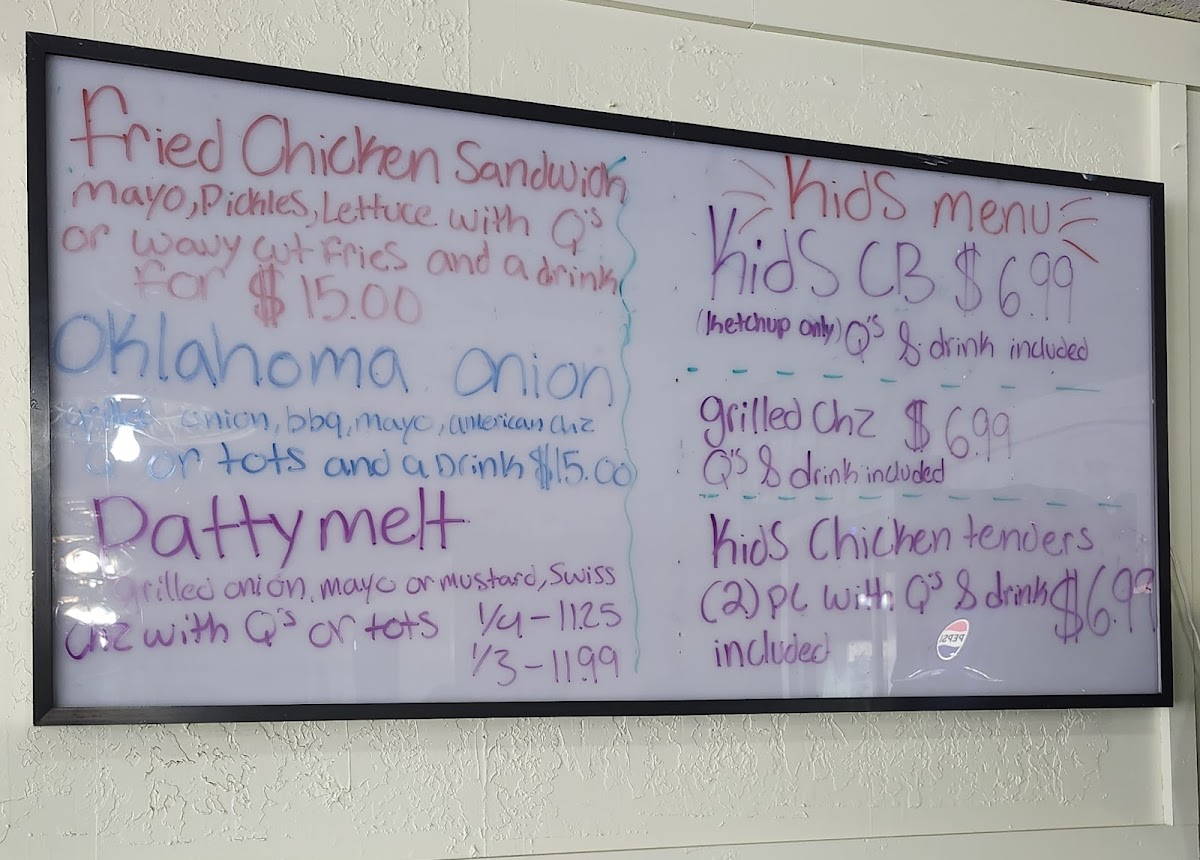 Fried Chicken Sandwich
mayo, Pickles, Lettuce with Q's
or wavy cut fries and a drink
for $15.00
Oklahoma onion
onion, bbq, mayo, american chz
Q or tots and a Drink $15.00
Patty melt
grilled onion, mayo or mustard, Swiss
chz with Q's or tots 1/4 - 11.25
1/3 - 11.99
Kids menu
Kids CB $6.99
(Ketchup only) Q's & drink included
grilled Chz $6.99
Q's & drink included
Kids Chicken tenders
(2) pc with Q's & drink $6.99
included
PEPSI